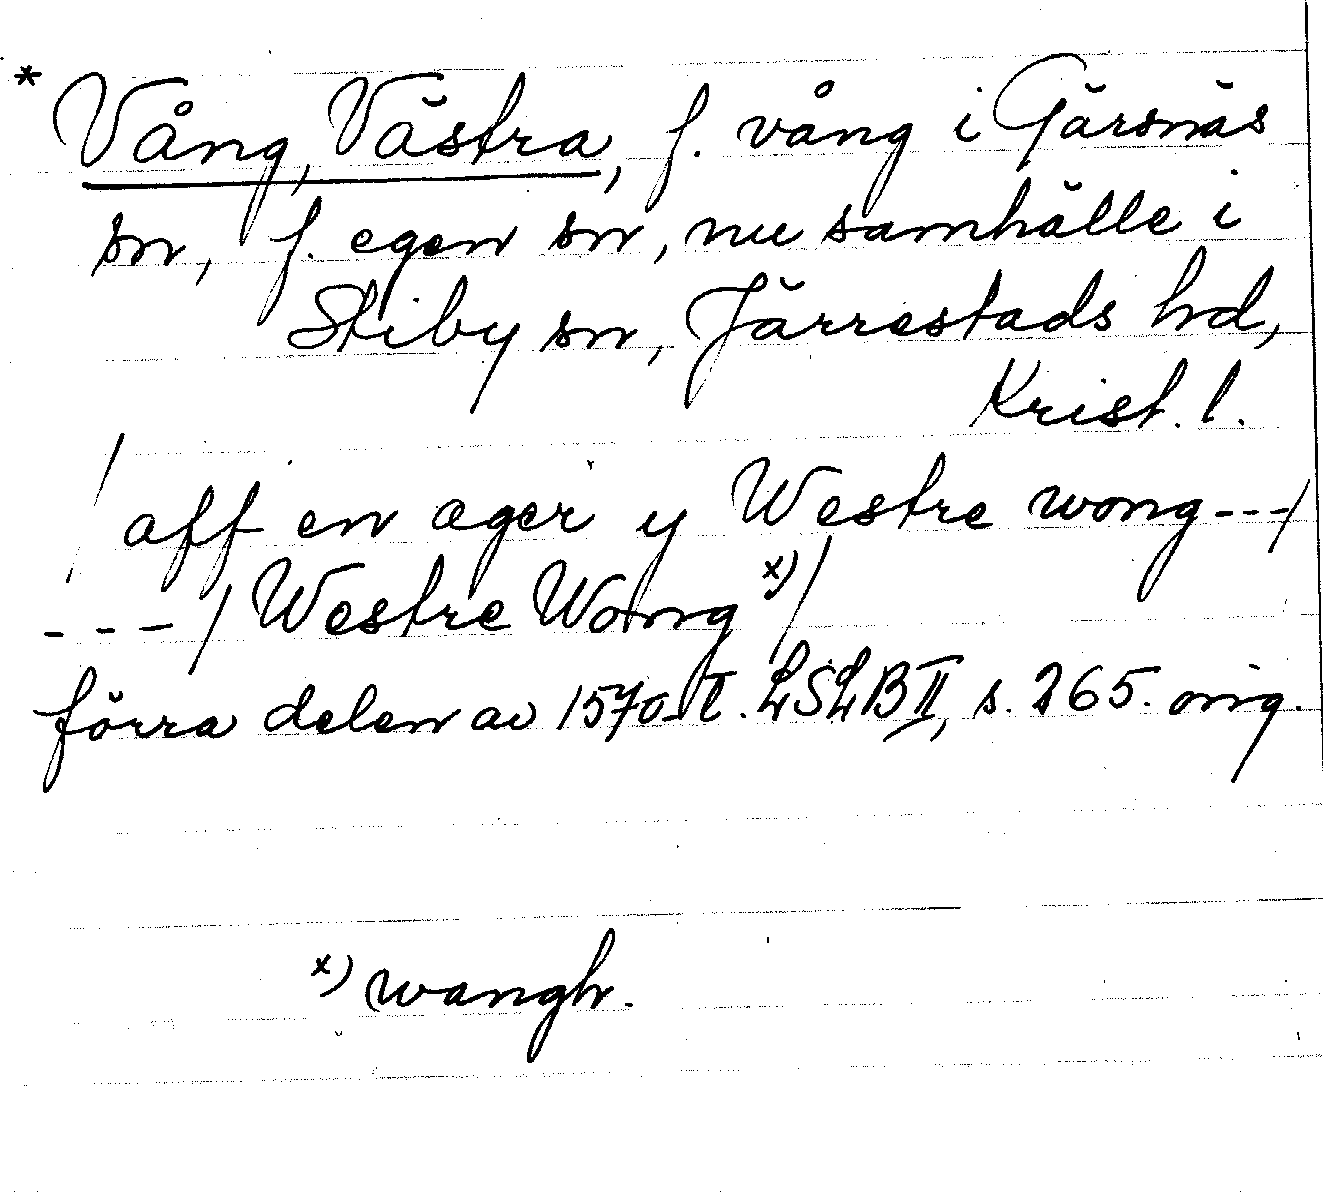 * Vång, Västra, f. vång i Gärsnäs
sn, f. egen sn, nu samhälle i
Stiby sn, Järrestads hd,
Krist. l.
/ aff en ager y Westre wong ---/
--- / Westre Wong x) /
förra delen av 1570-t. LSLB II, s. 265. orig.
x) wangh.